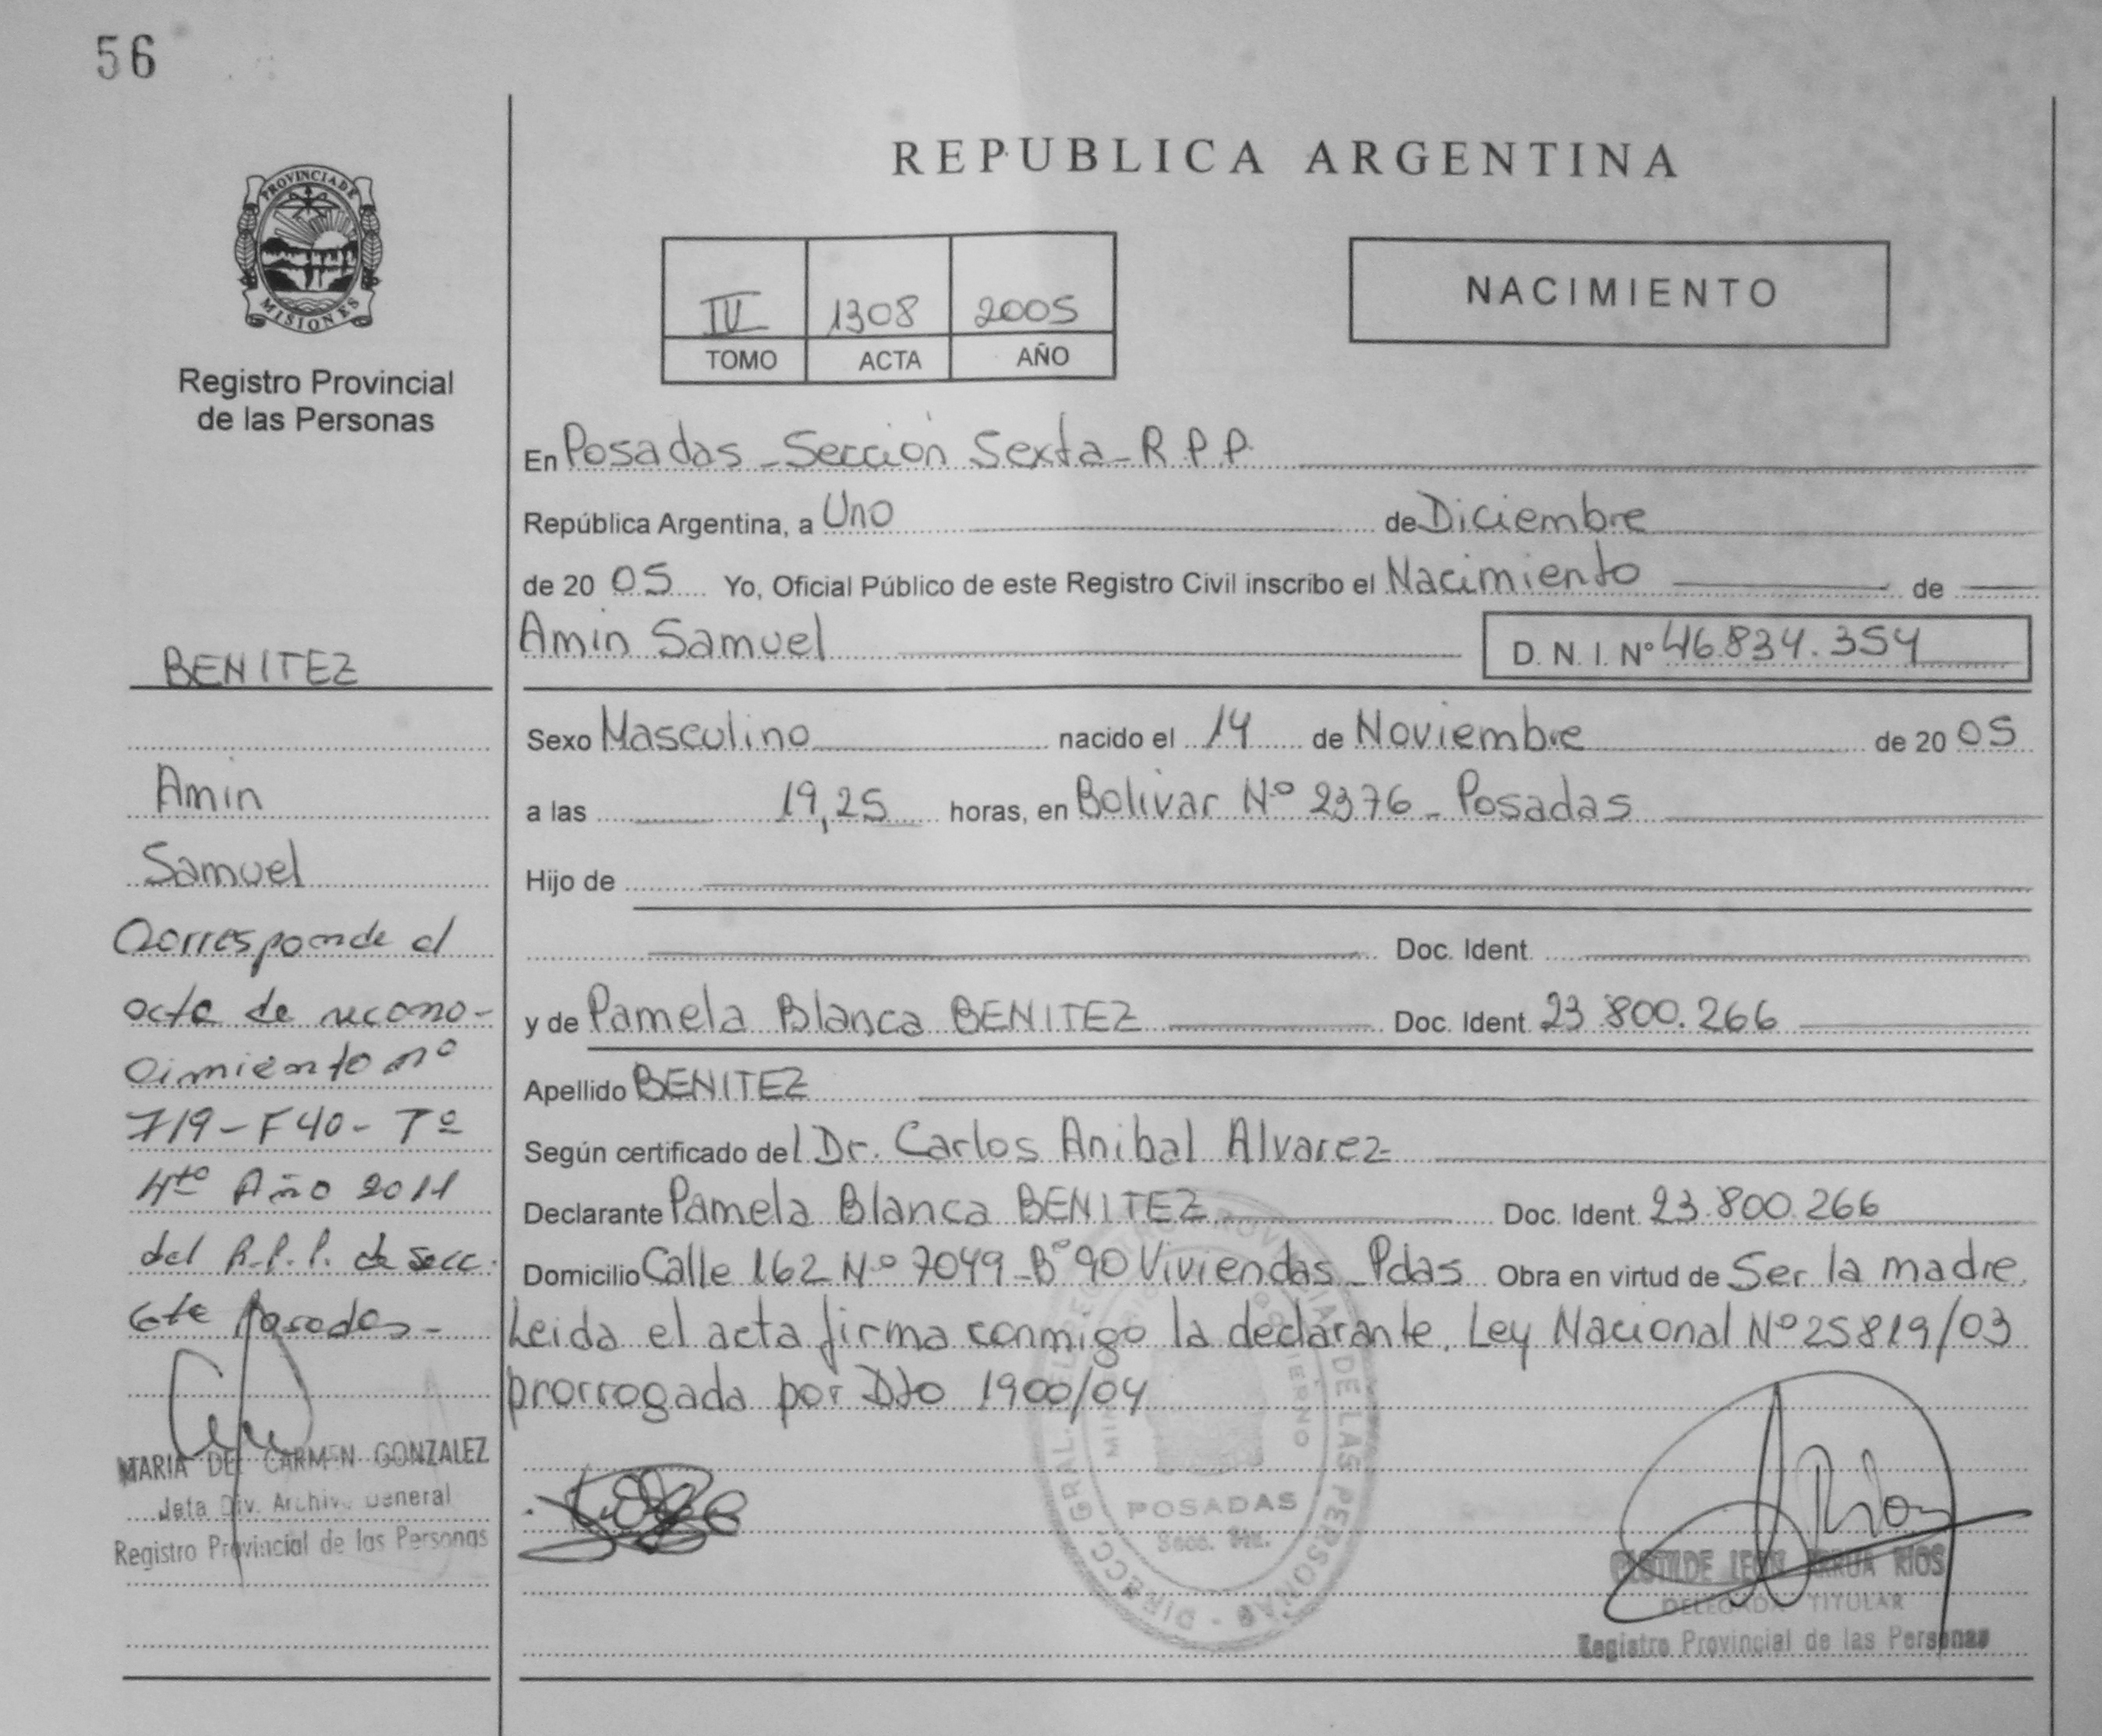 56
PROVINCIA DE
MISIONES
Registro Provincial
de las Personas
BENITEZ
Amin
Samuel
Corresponde al
acta de recono-
cimiento nº
719-F40-Tº
4to Año 2011
del R.P.P. de Secc.
6ta Posadas-
MARIA DEL CARMEN GONZALEZ
Jefa Div. Archivo General
Registro Provincial de las Personas
REPUBLICA ARGENTINA
IV 1308 2005
TOMO ACTA AÑO
NACIMIENTO
En Posadas - Sección Sexta - R.P.P.
República Argentina, a Uno de Diciembre
de 20 05 Yo, Oficial Público de este Registro Civil inscribo el Nacimiento de
Amin Samuel D. N. I. Nº 46.834.354
Sexo Masculino nacido el 14 de Noviembre de 20 05
a las 19,25 horas, en Bolivar Nº 2376 - Posadas
Hijo de
Doc. Ident.
y de Pamela Blanca BENITEZ Doc. Ident. 23.800.266
Apellido BENITEZ
Según certificado del Dr. Carlos Anibal Alvarez
Declarante Pamela Blanca BENITEZ Doc. Ident. 23.800.266
Domicilio Calle 162 Nº 7049 - Bº 90 Viviendas - Pdas Obra en virtud de Ser la madre.
Leida el acta firma conmigo la declarante. Ley Nacional Nº 25819/03
prorrogada por Dto 1900/04
DIRECC. GRAL. DEL REGISTRO PROVINCIAL DE LAS PERSONAS
MINISTERIO GOBIERNO
POSADAS
Secc. 6ta.
CLOTILDE LEON IRRUA RIOS
DELEGADA TITULAR
Registro Provincial de las Personas